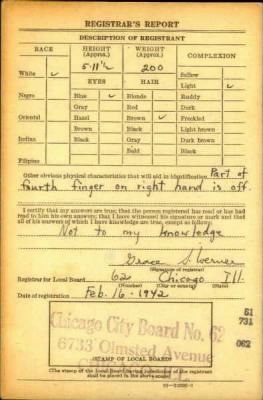 REGISTRAR'S REPORT
DESCRIPTION OF REGISTRANT
RACE HEIGHT (Approx.) WEIGHT (Approx.) COMPLEXION
5-11½ 200
White ✓ Sallow
EYES HAIR Light ✓
Negro Blue ✓ Blonde Ruddy
Gray Red Dark
Oriental Hazel Brown ✓ Freckled
Brown Black Light brown
Indian Black Gray Dark brown
Bald Black
Filipino
Other obvious physical characteristics that will aid in identification Part of
fourth finger on right hand is off.
I certify that my answers are true; that the person registered has read or has had
read to him his own answers; that I have witnessed his signature or mark and that
all of his answers of which I have knowledge are true, except as follows:
Not to my knowledge
Grace S. Werner
(Signature of registrar)
Registrar for Local Board 62 Chicago Ill.
(Number) (City or county) (State)
Date of registration Feb. 16-1942
61
731
062
Chicago City Board No. 62
6733 Olmsted Avenue
CHICAGO, ILL.
(STAMP OF LOCAL BOARD)
(The stamp of the Local Board having jurisdiction of the registrant
shall be placed in the above space.)